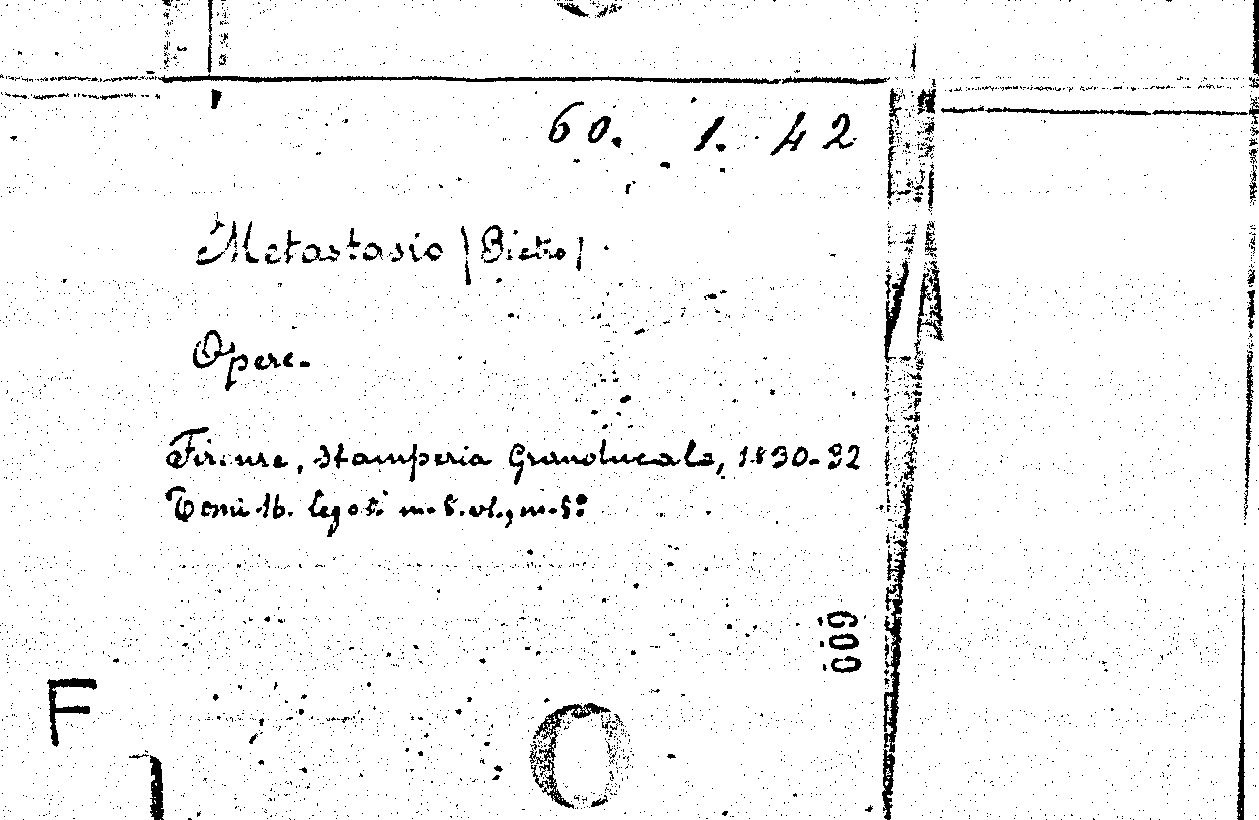 60. 1. 42
Metastasio (Pietro)
Opere.
Firenze, Stamperia Granducale, 1830-32
Tomi 16. legati in-8. vol., in-8º
600
F
O